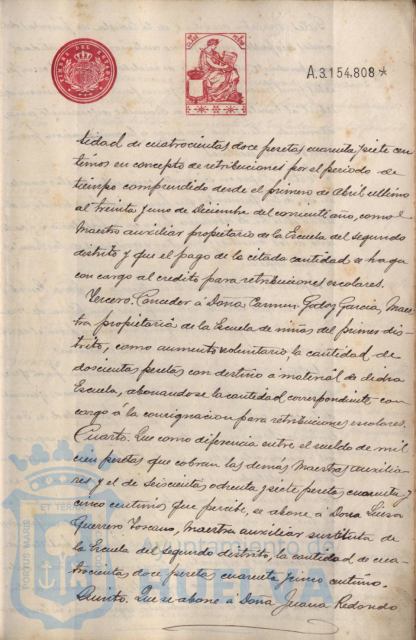 TIMBRE DEL ESTADO
A.3.154.808*
tidad de cuatrocientas doce pesetas cuarenta y siete cen
timos en concepto de retribuciones por el periodo de
tiempo comprendido desde el primero de Abril ultimo
al treinta y uno de Diciembre del corriente año, como el
Maestro auxiliar propietario de la Escuela del segundo
distrito y que el pago de la citada cantidad se haga
con cargo al credito para retribuciones escolares.
Tercero. Conceder á Doña Carmen Godoy Garcia, Maes
tra propietaria de la Escuela de niñas del primer dis
trito, como aumento voluntario, la cantidad de
doscientas pesetas con destino a material de dicha
Escuela, abonandose la cantidad correspondiente con
cargo á la consignacion para retribuciones escolares.
Cuarto. Que como diferencia entre el sueldo de mil
cien pesetas que cobran las demás Maestras auxilia
res y el de seiscientas ochenta y siete pesetas cuarenta y
cinco centimos que percibe, se abone á Doña Luisa
Guerrero Toscano, maestra auxiliar sustituta de
la Escuela del segundo distrito, la cantidad de cua
trocientas doce pesetas cuarenta y cinco centimos.
Quinto. Que se abone á Doña Juana Redondo
PORTUS MARIS
ET TERRAE
Ayuntamiento de
HUELVA